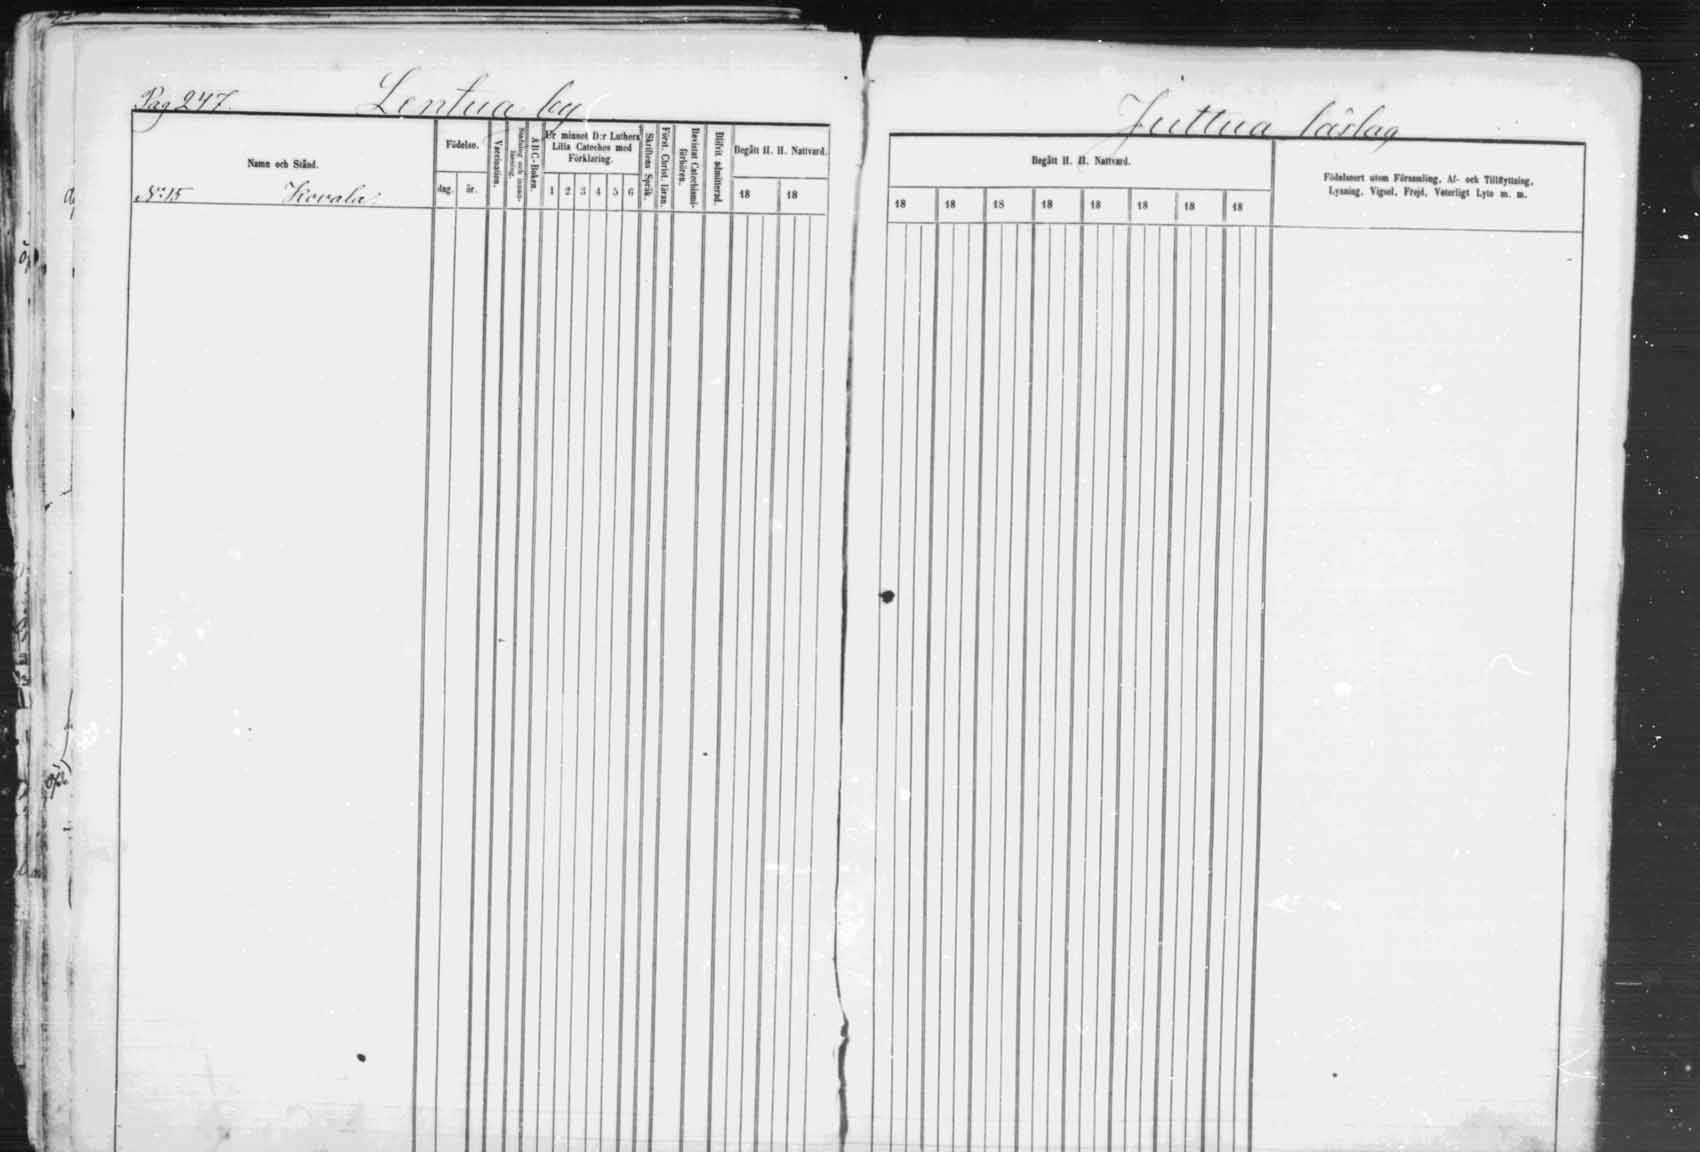 Pag 247. Lentua by
Namn och Stånd.
Födelse.
dag. år.
Vaccination.
ABC-Boken.
Ur minnet D:r Luthers
Lilla Cateches med
Förklaring.
1 2 3 4 5 6
Skriftens Språk.
Först. Christ. läran.
Bevistat Catechismi-
förhören.
Blifvit admitterad.
Begått H. H. Nattvard.
18 18
No 15 Kovala
Juttua läslag
Begått H. H. Nattvard.
18 18 18 18 18 18 18 18
Födelseort utom Församling, Af- och Tillflyttning,
Lysning, Vigsel, Frejd, Veterligt Lyte m. m.